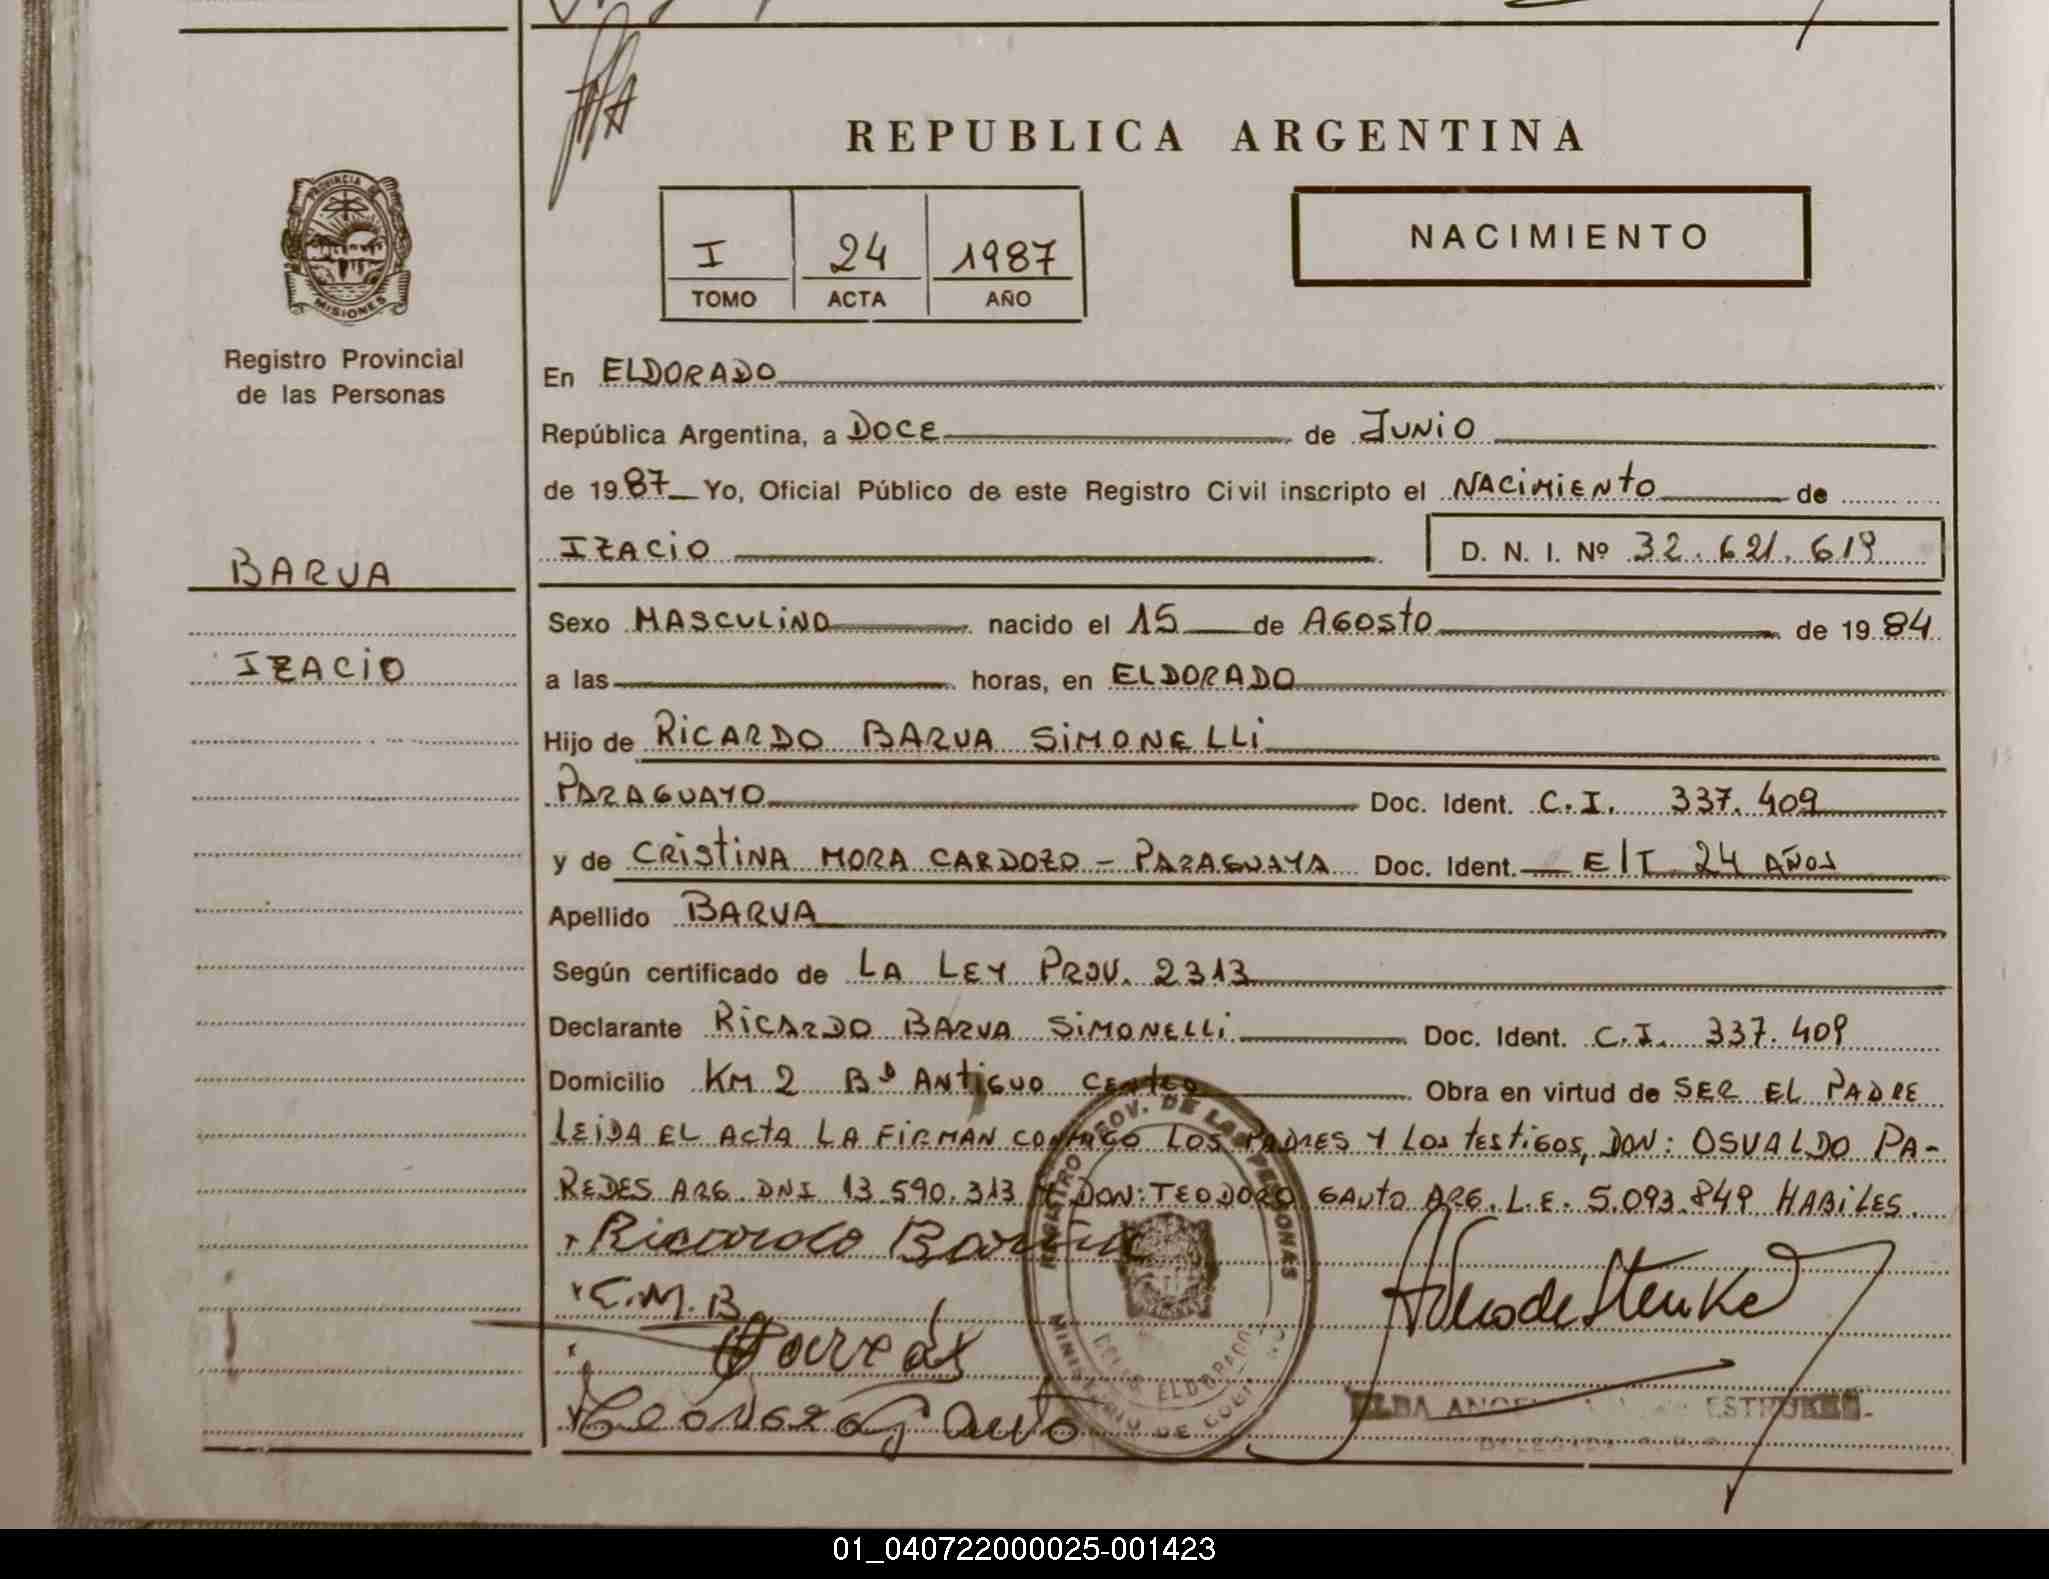 REPUBLICA ARGENTINA
PROVINCIA DE
MISIONES
Registro Provincial
de las Personas
BARUA
IZACIO
I 24 1987
TOMO ACTA AÑO
NACIMIENTO
En ELDORADO
República Argentina, a DOCE de JUNIO
de 1987 Yo, Oficial Público de este Registro Civil inscripto el NACIMIENTO de
IZACIO D. N. I. Nº 32.621.619
Sexo MASCULINO nacido el 15 de AGOSTO de 1984
a las horas, en ELDORADO
Hijo de RICARDO BARUA SIMONELLI
PARAGUAYO Doc. Ident. C.I. 337.409
y de CRISTINA MORA CARDOZO - PARAGUAYA Doc. Ident. E/T 24 AÑOS
Apellido BARUA
Según certificado de LA LEY PROV. 2313
Declarante RICARDO BARUA SIMONELLI Doc. Ident. C.I. 337.409
Domicilio KM 2 Bº ANTIGUO CENTRO Obra en virtud de SER EL PADRE
LEIDA EL ACTA LA FIRMAN CONMIGO LOS PADRES Y LOS TESTIGOS, DON: OSVALDO PA-
REDES ARG. DNI 13.590.313 Y DON: TEODORO GAUTO ARG. L.E. 5.093.849 HABILES.
Ricardo Barua
C.M.B.
REGISTRO PROV. DE LAS PERSONAS
MINISTERIO DE GOBIERNO
ELDORADO
Gauto
01_040722000025-001423